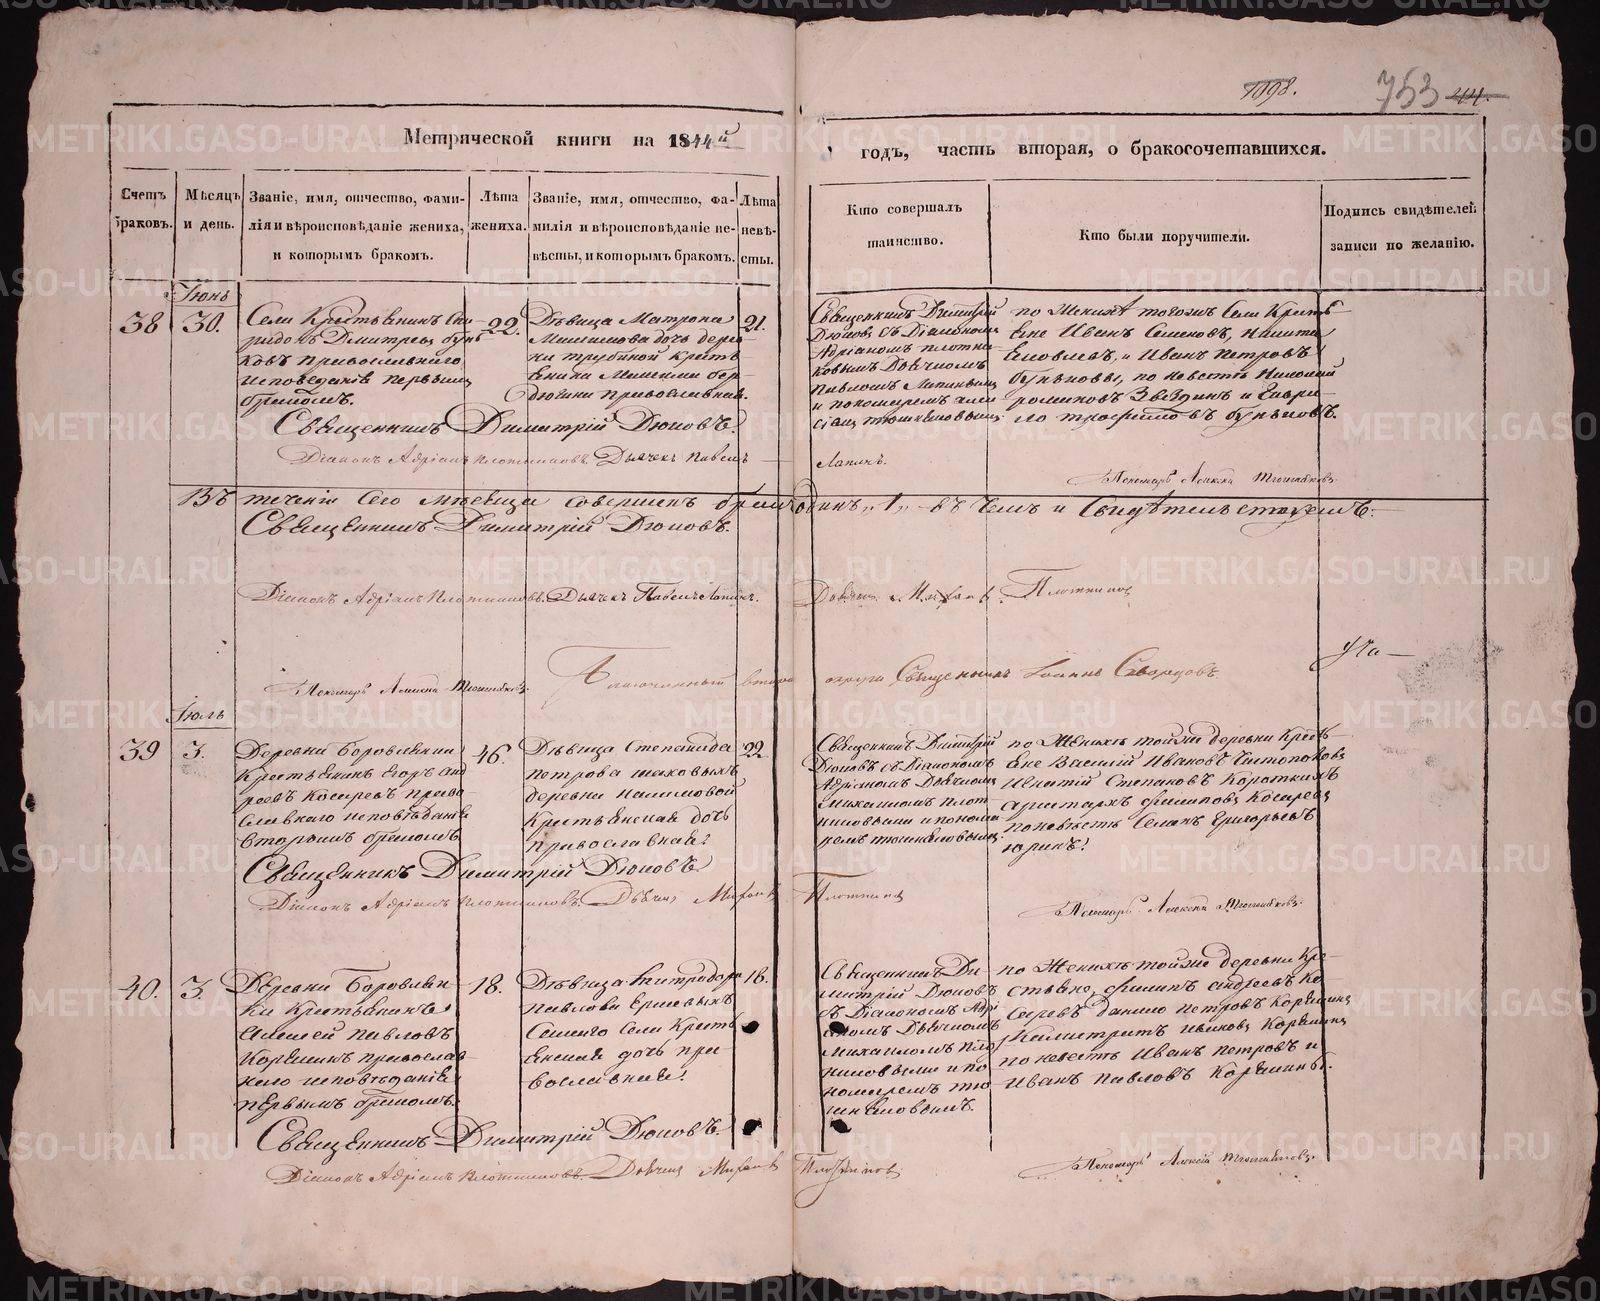 1098. 753 44.
Метрической книги на 1844й
годъ, часть вторая, о бракосочетавшихся.
Счетъ браковъ.
Мѣсяцъ и день.
Званіе, имя, отчество, фами-
лія и вѣроисповѣданіе жениха,
и которымъ бракомъ.
Лѣта
жениха.
Званіе, имя, отчество, фа-
милія и вѣроисповѣданіе не-
вѣсты, и которымъ бракомъ.
Лѣта
невѣ-
сты.
Кто совершалъ
таинство.
Кто были поручители.
Подпись свидѣтелей
записи по желанію.
Іюнь
38
30.
Села Крестьянинъ Спи
ридонъ Димитріевъ
ковъ православнаго
исповеданія первымъ
бракомъ.
22.
Дѣвица Матрона
дочь дерев
ни трубиной кресть
янина
православная.
21.
Священникъ Димитрій
Дюковъ съ Діакономъ
Адріаномъ плотни
ковымъ Дьячкомъ
Павломъ Лапинымъ
и пономаремъ алек
сіемъ
по Женихѣ тогожъ Села Кресть
яне Иванъ Семеновъ, Никита
Яковлевъ, и Иванъ петровъ
по невестѣ Николай
Звездинъ и Гаври
ло трофимовъ
Священникъ Димитрій Дюковъ.
Діаконъ Адріанъ Плотниковъ. Дьячекъ Павелъ
Лапинъ.
Пономарь Алексей
Въ теченіи Сего месяца совершенъ бракъ одинъ „1„ въ чемъ и Свидѣтельствуемъ.
Священникъ Димитрій Дюковъ.
Діаконъ Адріанъ Плотниковъ. Дьячекъ Павелъ Лапинъ.
Дьячекъ Михаилъ Плотников
Пономарь Алексей
Благочинный втораго округа Священникъ Іоаннъ
Іюль
39
3.
Деревни Боровлянки
Крестьянинъ Егоръ анд
реевъ Косаревъ право
славнаго исповѣданія
вторымъ бракомъ
46.
Дѣвица Степанида
петрова
деревни налимовой
Крестьянская дочь
православная
22
Священникъ Димитрій
Дюковъ съ Діакономъ
Адріаномъ Дьячкомъ
михаиломъ плот
никовыми и понома
ремъ
по Женихѣ тойже деревни Кресть
яне Василій Ивановъ
Игнатій Степановъ Коротких
аристархъ филипповъ Косаревъ
по невѣстѣ Григорьевъ
юринъ
Священникъ Димитрій Дюковъ
Діаконъ Адріанъ Плотниковъ. Дьячекъ Михаилъ Плотников
Пономарь Алексей
40.
3.
Деревни Боровлян
ки Крестьянинъ
Алексей павловъ
Корякинъ православ
наго исповѣданія
первымъ бракомъ.
18.
Дѣвица Митродора
павлова
Сего Села Кресть
янская дочь пра
вославная
18.
Священникъ Ди
митрій Дюковъ
съ Діакономъ Адрі
аномъ Дьячкомъ
михаиломъ плот
никовыми и по
номаремъ
по Женихѣ тойже деревни Кре
стьяне, филипъ андреевъ Ко
саревъ данило петровъ Корякинъ
ивановъ Корякинъ
по невестѣ Иванъ петровъ и
Иванъ павловъ Корякины.
Священникъ Димитрій Дюковъ.
Діаконъ Адріанъ Плотниковъ. Дьячекъ Михаилъ Плотников
Пономарь Алексей
METRIKI.GASO-URAL.RU